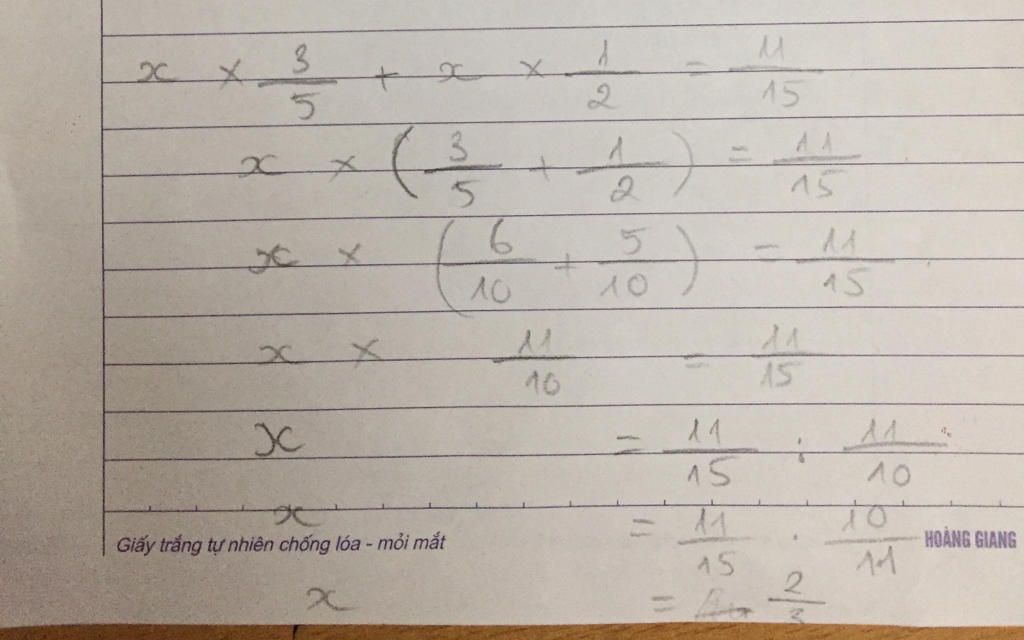 x × 3/5 + x × 1/2 = 11/15
x × (3/5 + 1/2) = 11/15
x × (6/10 + 5/10) = 11/15
x × 11/10 = 11/15
x = 11/15 : 11/10
x = 11/15 . 10/11
Giấy trắng tự nhiên chống lóa - mỏi mắt HOÀNG GIANG
x = 2/3